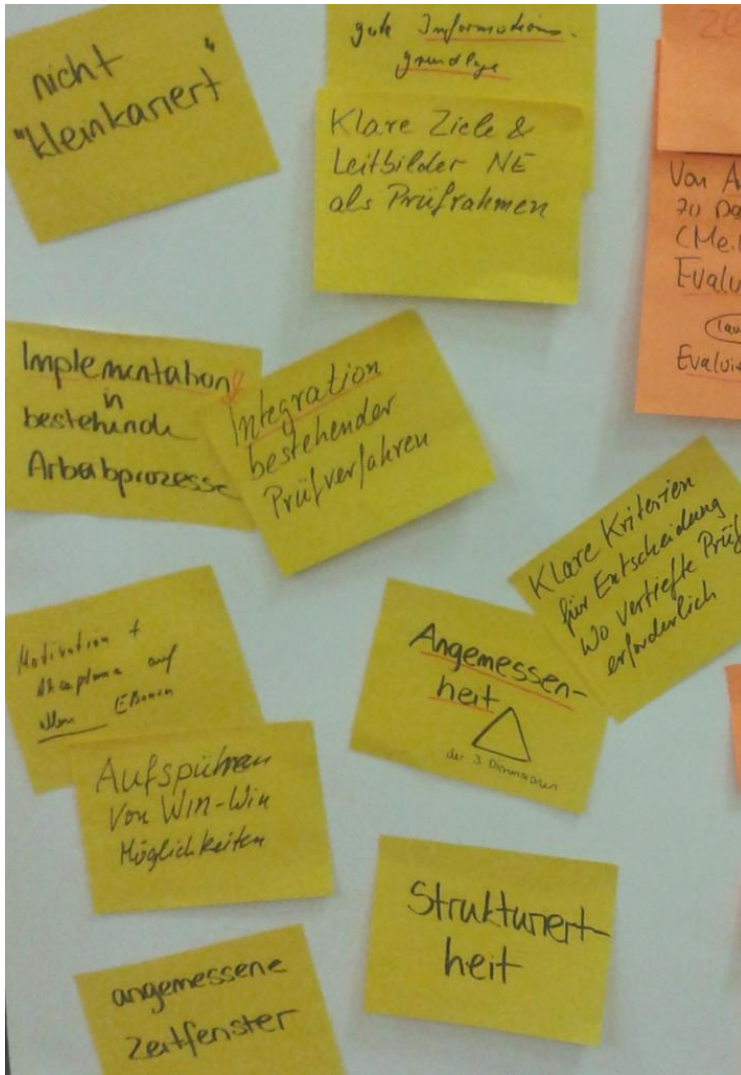 nicht
"kleinkariert"
gute Informations-
grundlage
Klare Ziele &
Leitbilder NE
als Prüfrahmen
Von
zu
Implementation
in
bestehende
Arbeitsprozesse
Integration
bestehender
Prüfverfahren
Klare Kriterien
für Entscheidung
Wo vertiefte Prüf
erforderlich
Motivation +
Akzeptanz auf
allen Ebenen
Angemessen-
heit
der 3 Dimensionen
Aufspüren
Von WIN-Win
Möglichkeiten
Strukturiert-
heit
angemessene
Zeitfenster